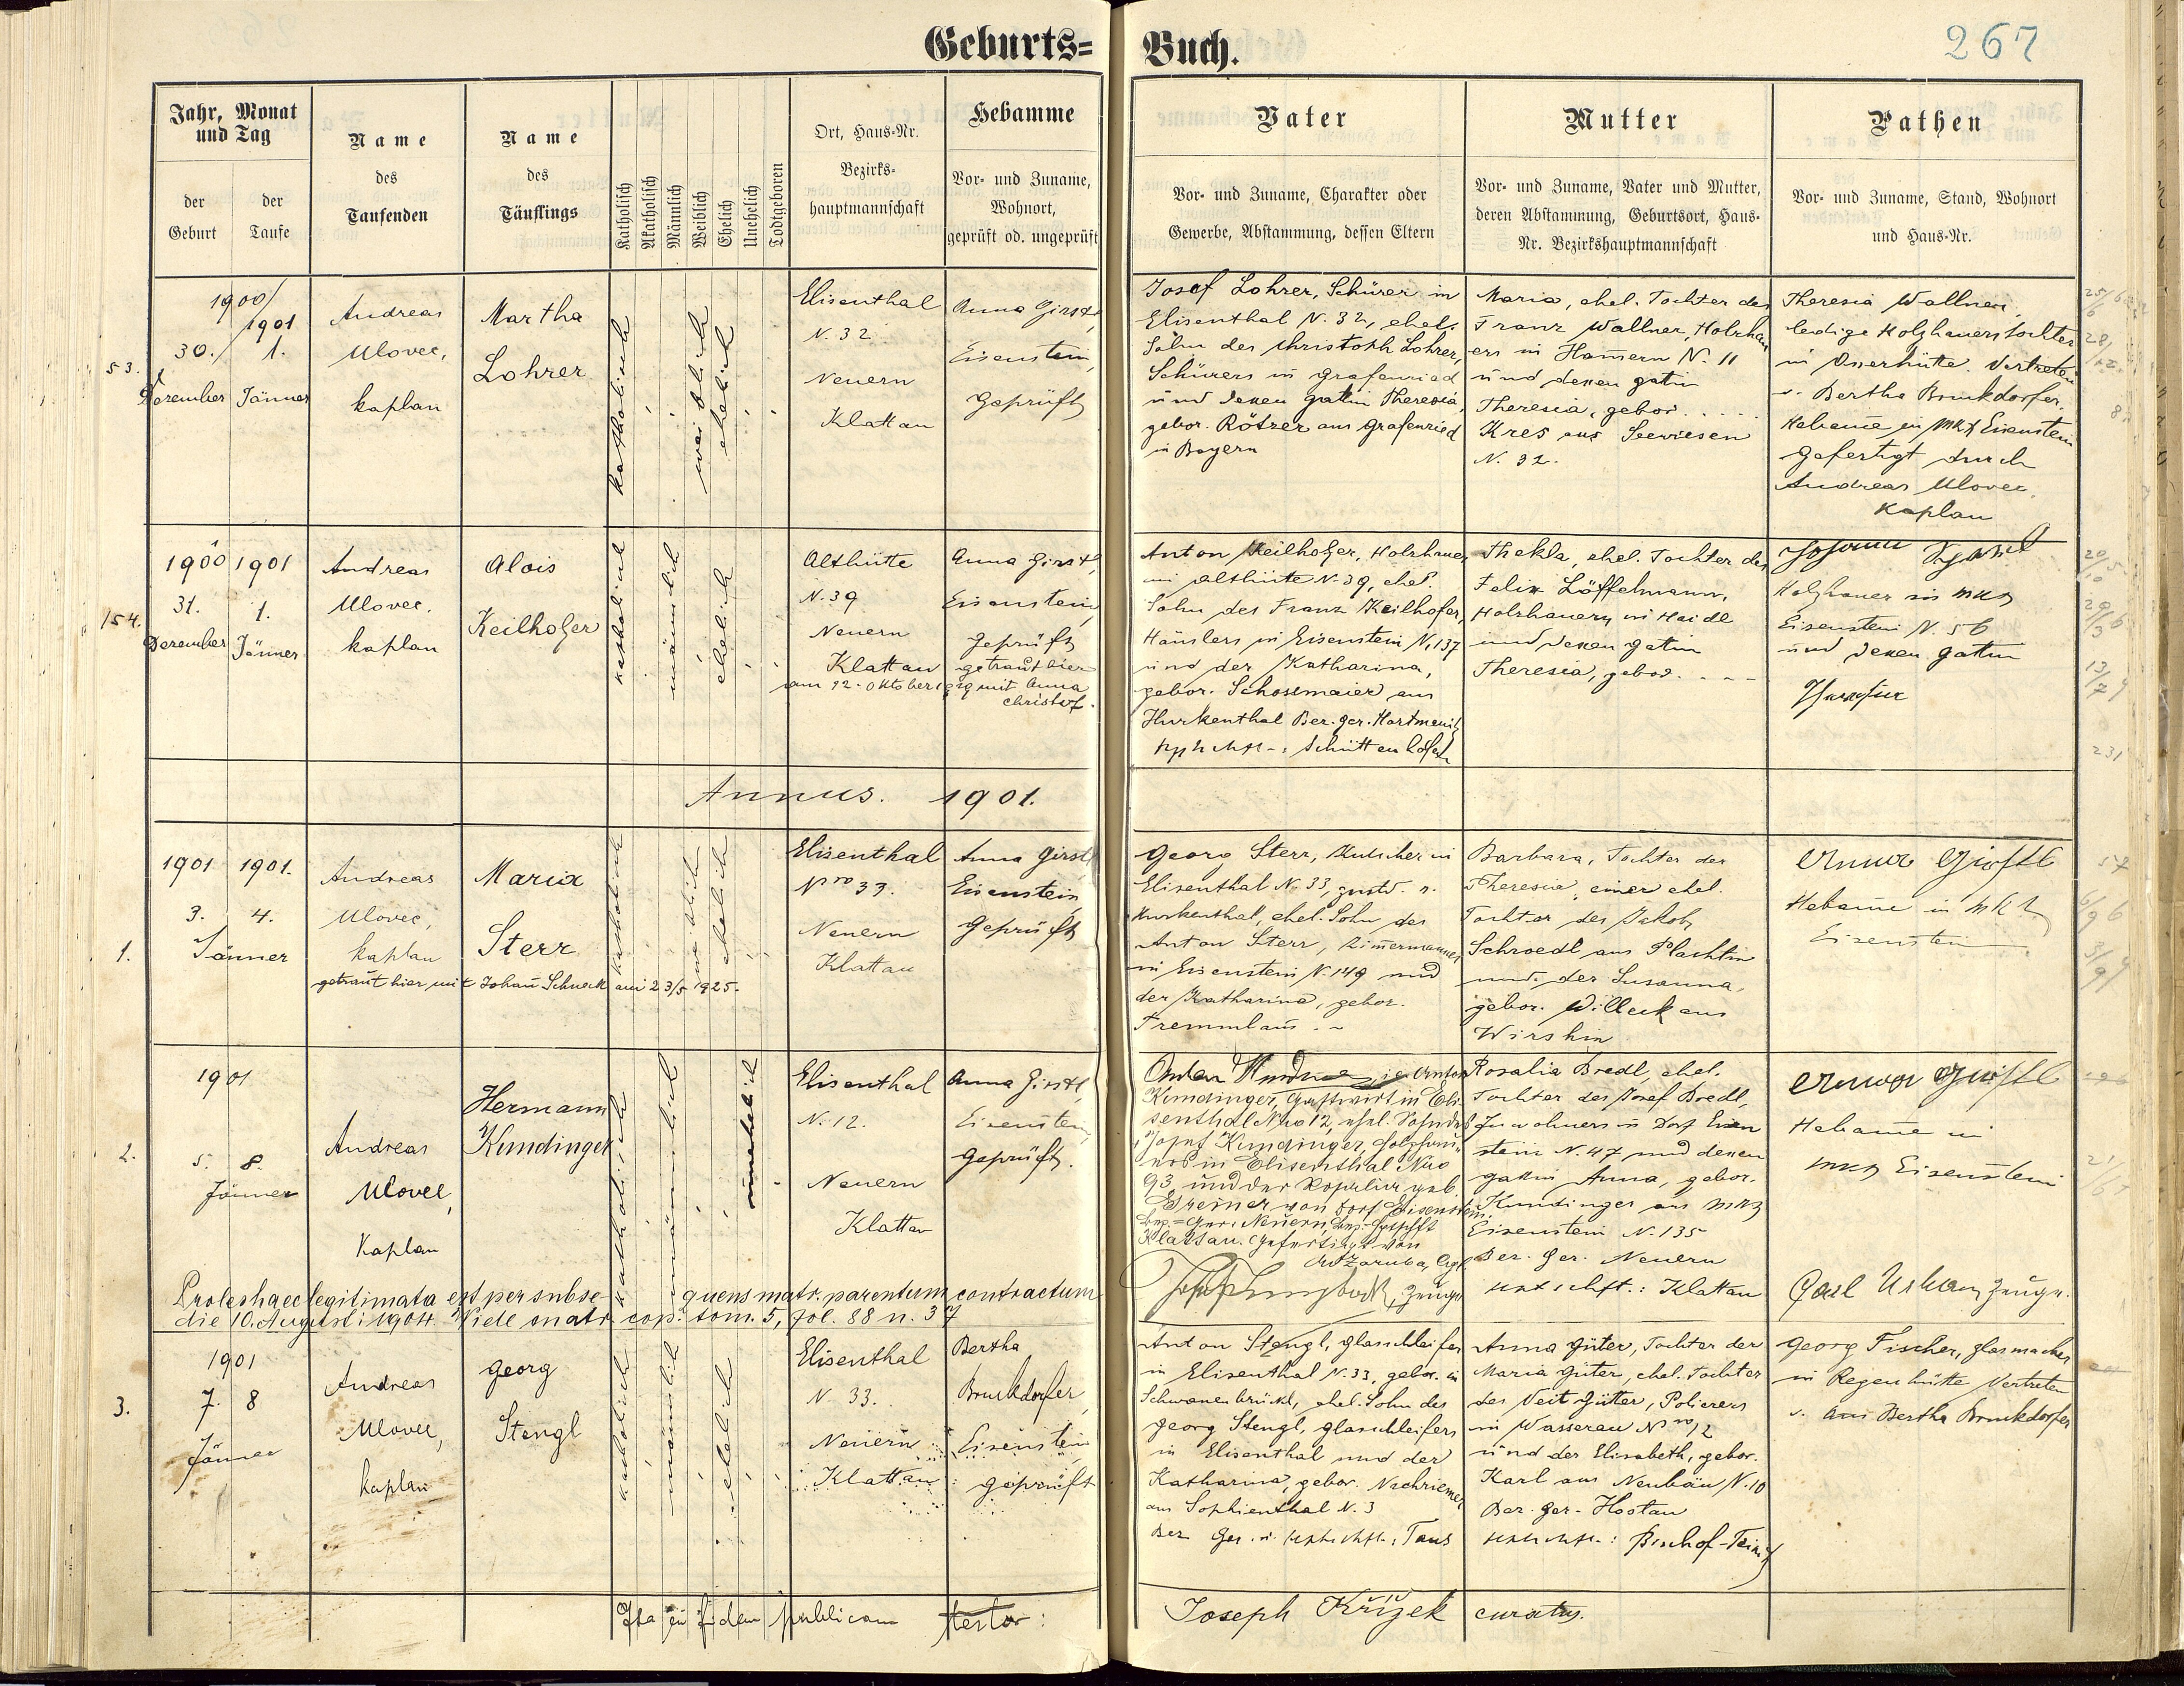 Geburts= Buch.
267
Jahr, Monat und Tag
der Geburt
der Taufe
Name des Taufenden
Name des Täuflings
Katholisch
Akatholisch
Männlich
Weiblich
Ehelich
Unehelich
Todtgeboren
Ort, Haus-Nr.
Bezirks-
hauptmannschaft
Hebamme
Vor- und Zuname,
Wohnort,
geprüft od. ungeprüft
Vater
Vor- und Zuname, Charakter oder
Gewerbe, Abstammung, dessen Eltern
Mutter
Vor- und Zuname, Vater und Mutter,
deren Abstammung, Geburtsort, Haus-
Nr. Bezirkshauptmannschaft
Pathen
Vor- und Zuname, Stand, Wohnort
und Haus-Nr.
53.
1900/
1901
30./ 1.
Dezember Jänner
Andreas
Ulovec,
kaplan
Martha
Lohrer
katholisch
weiblich
ehelich
Elisenthal
N. 32
Neuern
Klattau
Anna Girstl,
Eisenstein,
Geprüft
Josef Lohrer, Schürer in
Elisenthal N. 32, ehel.
Sohn des Christoph Lohrer,
Schürers in Grafenried
und dessen gatin Theresia,
gebor. Rötzer aus Grafenried
in Bayern
Maria, ehel. Tochter des
Franz Wallner, Holzhau
ers in Hamern N. 11
und dessen gatin
Theresia, gebor. ....
Kres aus Seewiesen
N. 32.
Theresia Wallner,
ledige Holzhauerstochter
in Osserhütte. Vertreten
v. Bertha Bruckdorfer,
Hebame in Mkt Eisenstein
Gefertigt durch
Andreas Ulovec,
Kaplan
154.
1900 1901
31. 1.
Dezember Jänner
Andreas
Ulovec.
kaplan
Alois
Keilhofer
katholisch
männlich
ehelich
Althütte
N. 39
Neuern
Klattau
Anna Girstl,
Eisenstein,
Geprüft
getraut hier
am 12. Oktober 1919 mit Anna
Christof.
Anton Keilhofer, Holzhauer
in Althütte N. 39, ehel.
Sohn des Franz Keilhofer,
Häuslers in Eisenstein N. 137
und der Katharina,
gebor. Schosemaier aus
Hurkenthal Bez. ger. Hartmanitz
Schüttenhofen
Thekla, ehel. Tochter des
Felix Löffelmann,
Holzhauers in Haidl
und dessen gatin
Theresia, gebor. ....
Johann
Holzhauer in Mkt
Eisenstein N. 56
und dessen gattin
Annus. 1901.
1.
1901 1901.
3. 4.
Jänner
Andreas
Ulovec,
kaplan
Maria
Sterr
katholisch
weiblich
ehelich
getraut hier mit Johann Schneck am 23/5 1925.
Elisenthal
Nro 33.
Neuern
Klattau
Anna Girstl,
Eisenstein,
Geprüft
Georg Sterr, Kutscher in
Elisenthal N. 33,
Hurkenthal, ehel. Sohn des
Anton Sterr, Zimermannes
in Eisenstein N. 149 und
der Katharina, gebor.
Fremmlaus. -
Barbara, Tochter der
Theresia, einer ehel.
Tochter des Jakob
Schroedl aus Plachtin
und der Susanna,
gebor. Willeck aus
Wirshin
Anna Girstl
Hebame in Mkt
Eisenstein
2.
1901
5. 8.
Jänner
Andreas
Ulovec,
Kaplan
Hermann
Kundinger
katholisch
männlich
unehelich
Elisenthal
N. 12.
Neuern
Klattau
Anna Girstl,
Eisenstein,
Geprüft.
Anton
Kundinger, Gastwirt in Eli-
senthal Nro 12, ehel. Sohn des
Josef Kundinger, Holzhau-
ers in Elisenthal Nro
93 und der Rosalia geb.
Greiner von Dorf Eisenstein.
Bez.-Ger.: Neuern, Bez.-Hptschft
Klattau. Gefertigt von
Zeuge
Rosalia Bredl, ehel.
Tochter des Josef Bredl,
Inwohners in Dorf Eisen
stein N. 47 und dessen
gattin Anna, gebor.
Kundinger aus Mkt
Eisenstein N. 135
Bez. Ger. Neuern
Klattau
Anna Girstl
Hebame in
Mkt Eisenstein
Carl Urban, Zeuge.
Proles haec legitimata est per subse- quens matr. parentum contractum
die 10. August: 1904. Vide matr. cop. tom. 5, fol. 88 n. 37
3.
1901
7. 8
Jänner
Andreas
Ulovec,
kaplan
Georg
Stengl
katholisch
männlich
ehelich
Elisenthal
N. 33.
Neuern
Klattau
Bertha
Bruckdorfer,
Eisenstein
geprüft
Anton Stengl, Glasschleifer
in Elisenthal N. 33, gebor. in
Schwanenbrückl, ehel. Sohn des
Georg Stengl, Glasschleifers
in Elisenthal und der
Katharina, gebor.
aus Sophienthal N. 3
Bez. Ger. u. Taus
Anna Güter, Tochter der
Maria Güter, ehel. Tochter
des Veit Gütter, Polierers
in Wasserau Nro 12
und der Elisabeth, gebor.
Karl aus Neubäu N. 10
Bez. ger. Hostau
Bischof-Teinitz
Georg Fischer, Glasmacher
in Regenhütte Vertreten
v. Bertha Bruckdorfer
Ita in fidem publicam testor:
Joseph Křížek curatus.